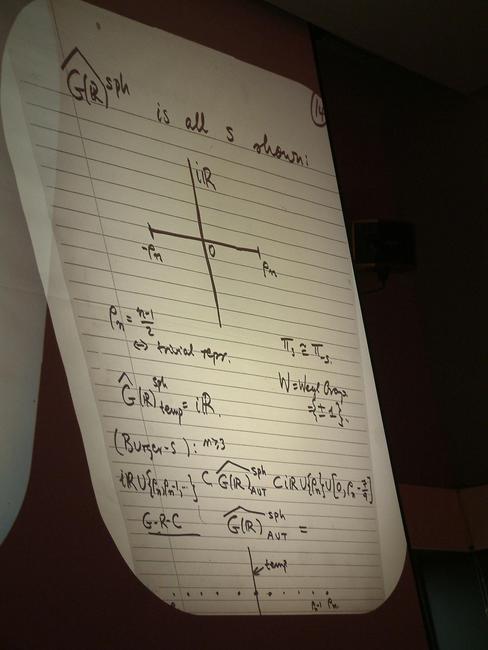 14
G(ℝ)^sph is all s shown:
iℝ
-ρₙ 0 ρₙ
ρₙ = n-1/2
⇔ trivial repr.
π_s ≅ π_-s.
W = Weyl Group
= {±1}.
Ĝ(ℝ)^sph_temp = iℝ.
(Burger-S): n≥3
iℝ∪{ρₙ, ρₙ-1, ...} ⊂ Ĝ(ℝ)^sph_AUT ⊂ iℝ∪{ρₙ}∪[0, ρₙ-7/9]
G-R-C Ĝ(ℝ)^sph_AUT =
temp
ρₙ-1 ρₙ